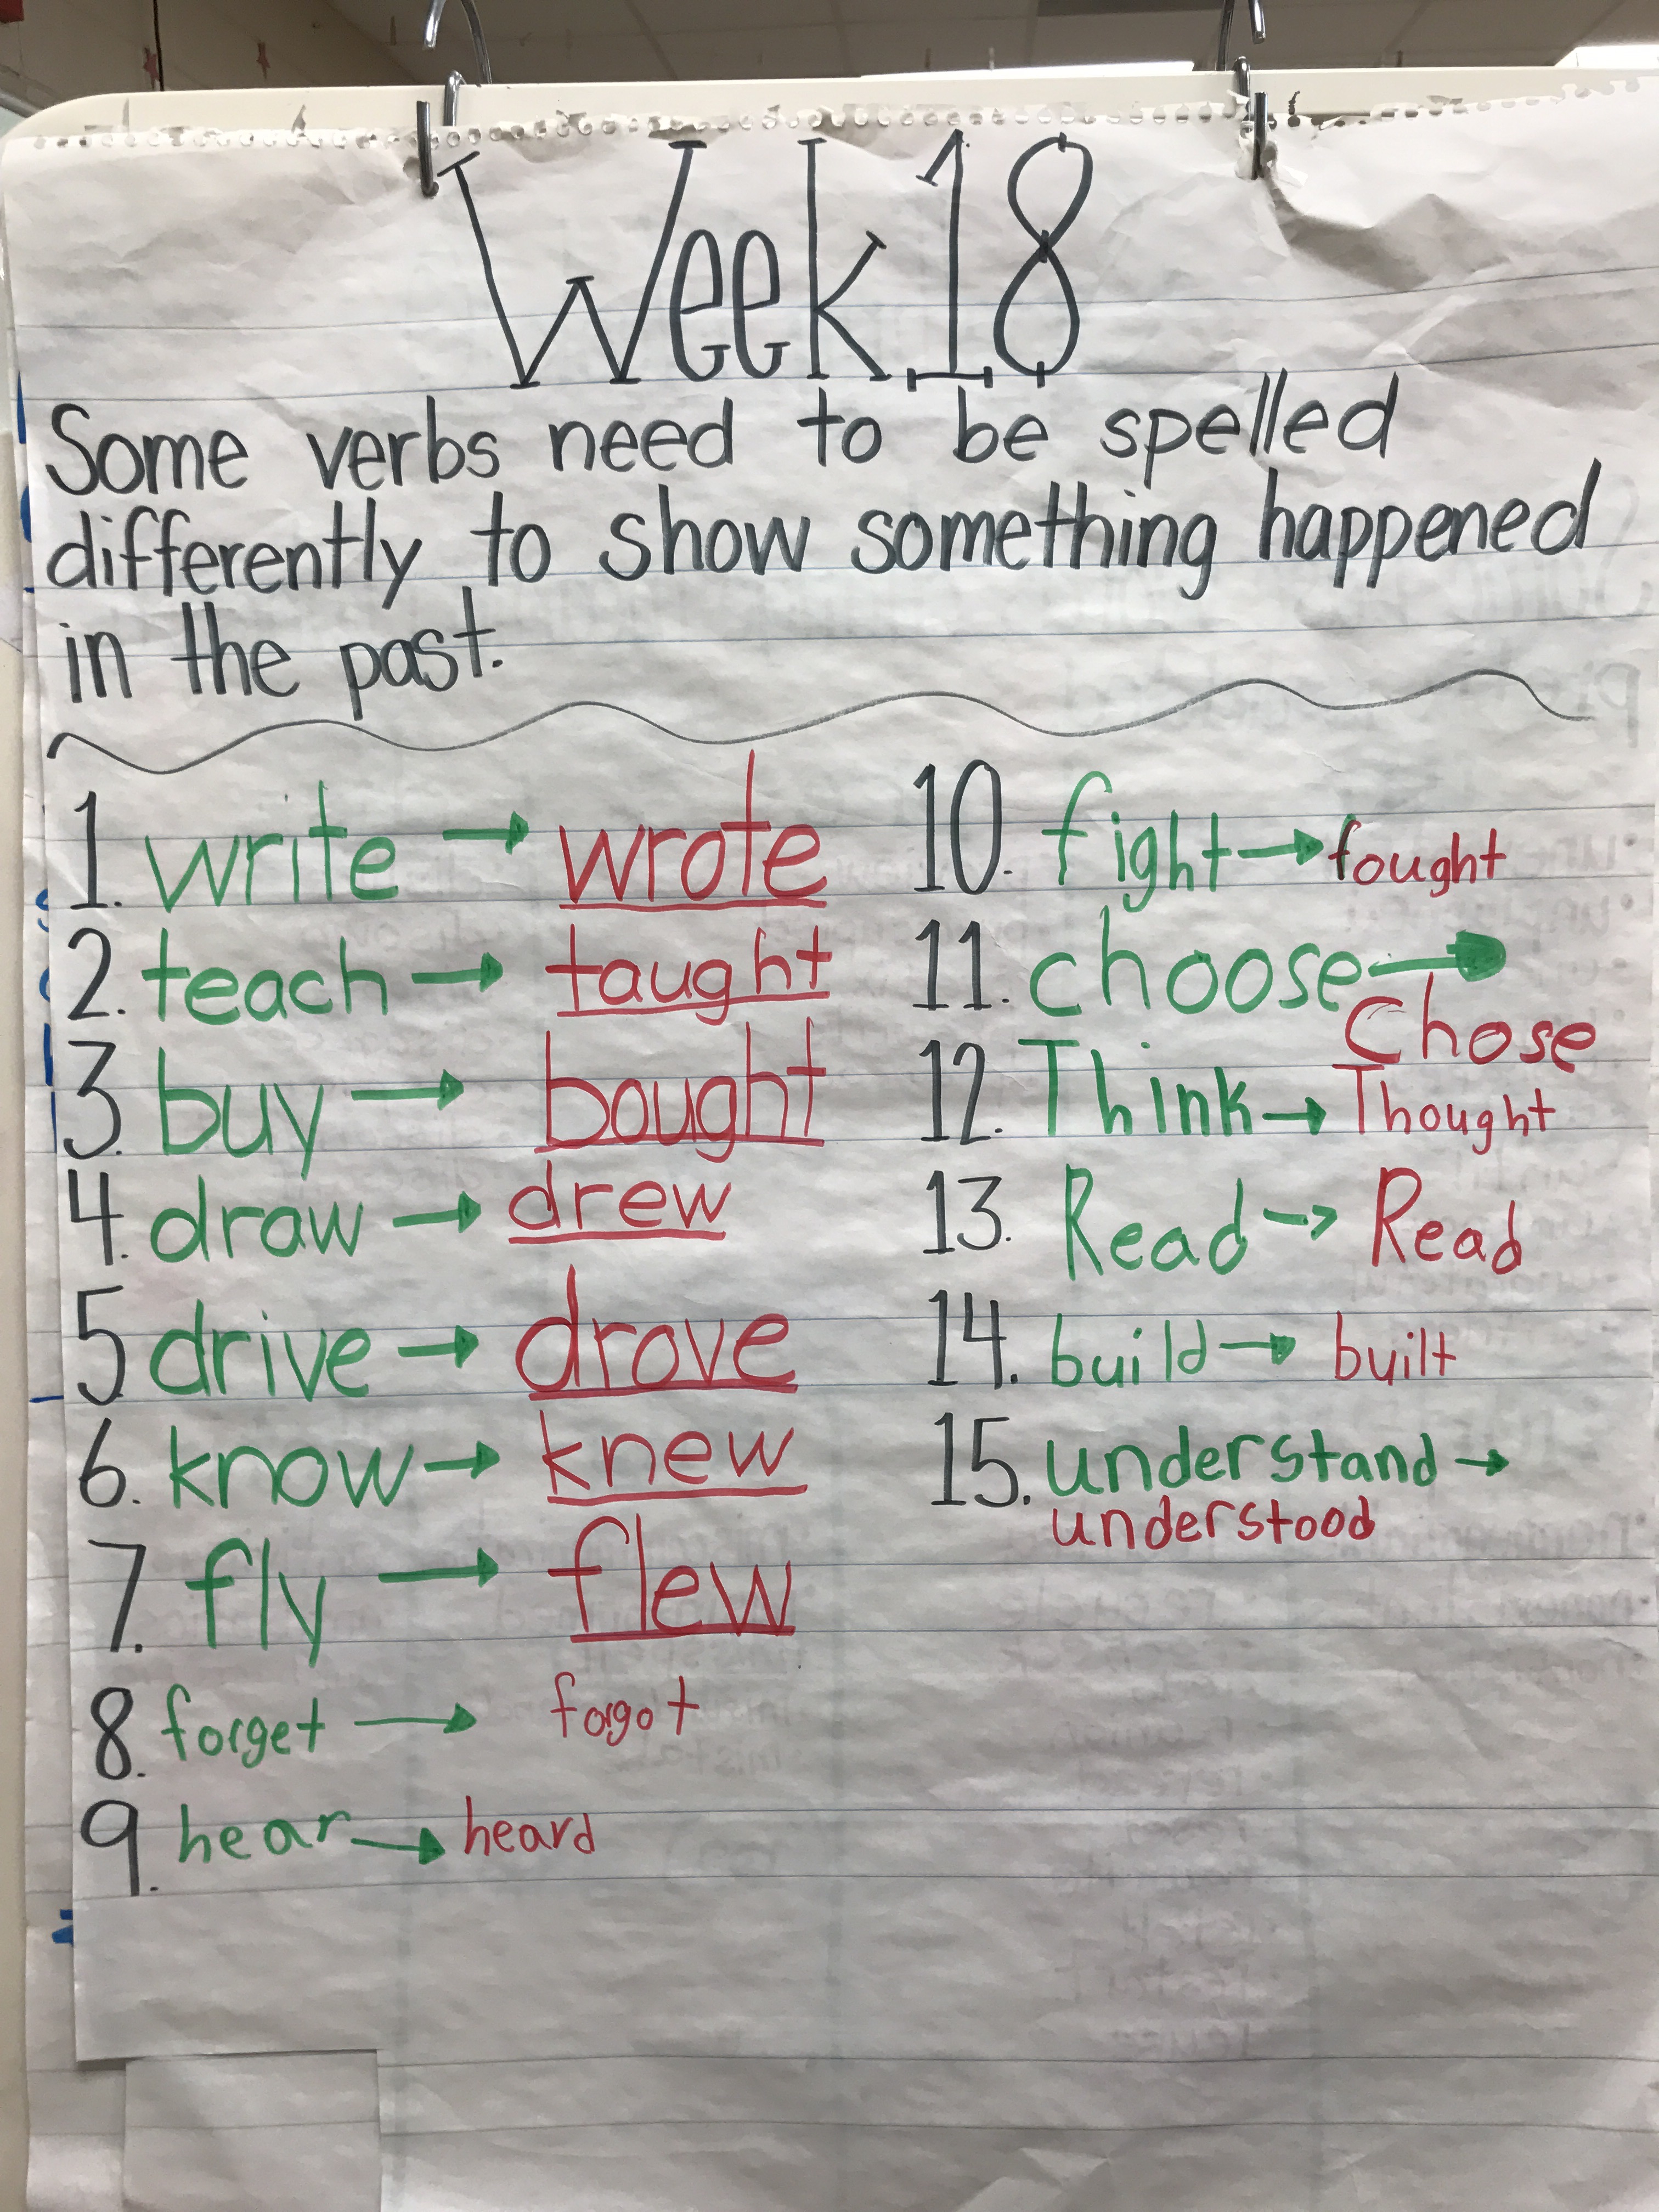 Week 18
Some verbs need to be spelled
differently to show something happened
in the past.
1. write → wrote
2. teach → taught
3. buy → bought
4. draw → drew
5 drive → drove
6. know → knew
7. fly → flew
8. forget → forgot
9. hear → heard
10. fight → fought
11. choose →
Chose
12. Think → Thought
13. Read → Read
14. build → built
15. understand →
understood